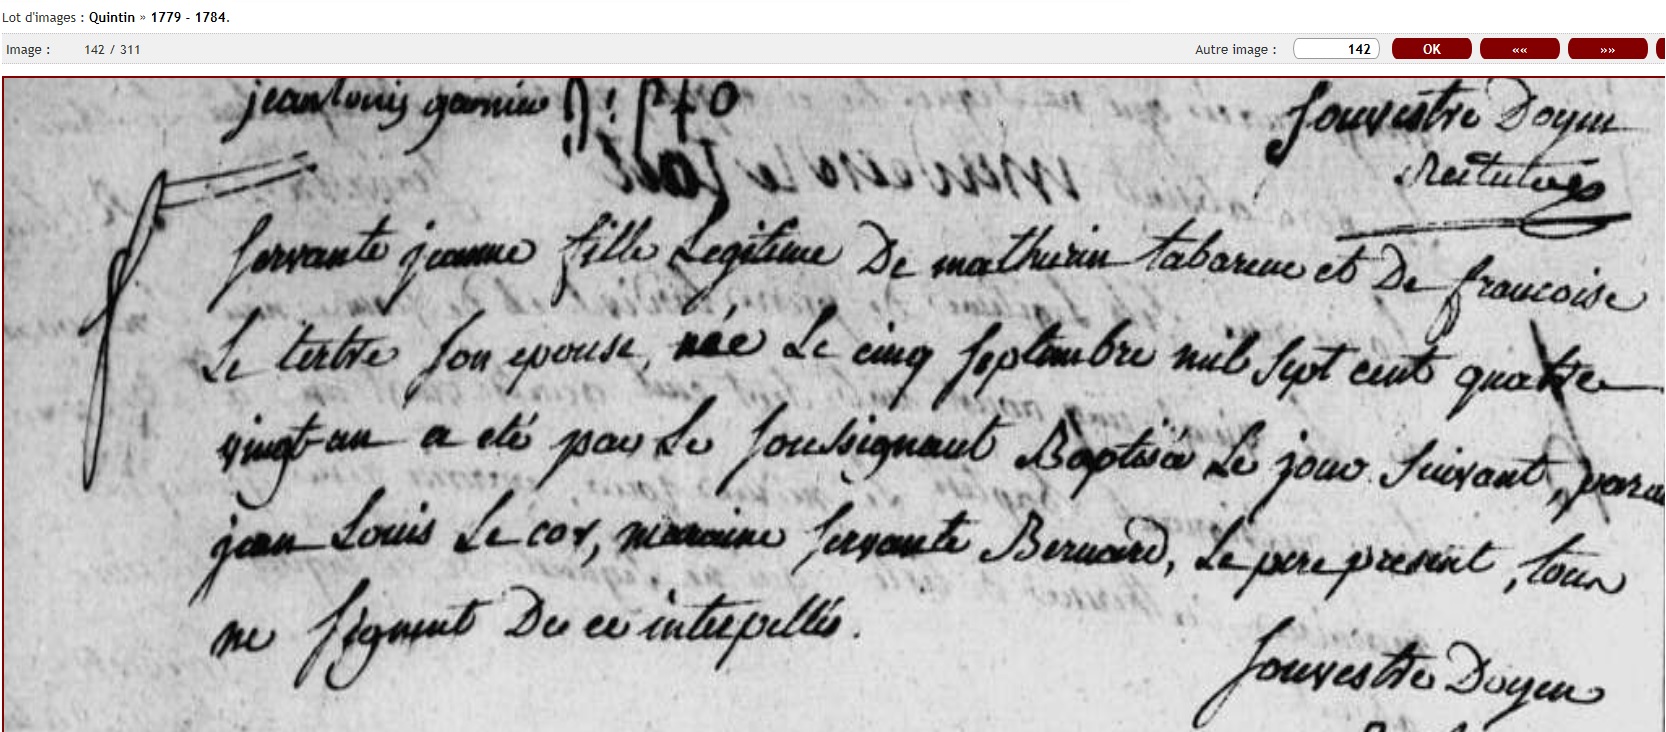 Lot d'images : Quintin » 1779 - 1784.
Image : 142 / 311 Autre image : 142 OK «« »»
jean louis garnier Souvestre Doyen
Servante jeanne fille Legitime De mathurin tabareuc et De francoise
Le tertre Son epouse, née Le cinq Septembre mil Sept cent quatre
vingt-un a eté par Le Soussignant Baptisée Le jour Suivant,
jean Louis Le cor, maraine Servante Bernard, Le pere present, tous
ne Signent De ce interpellés.
Souvestre Doyen